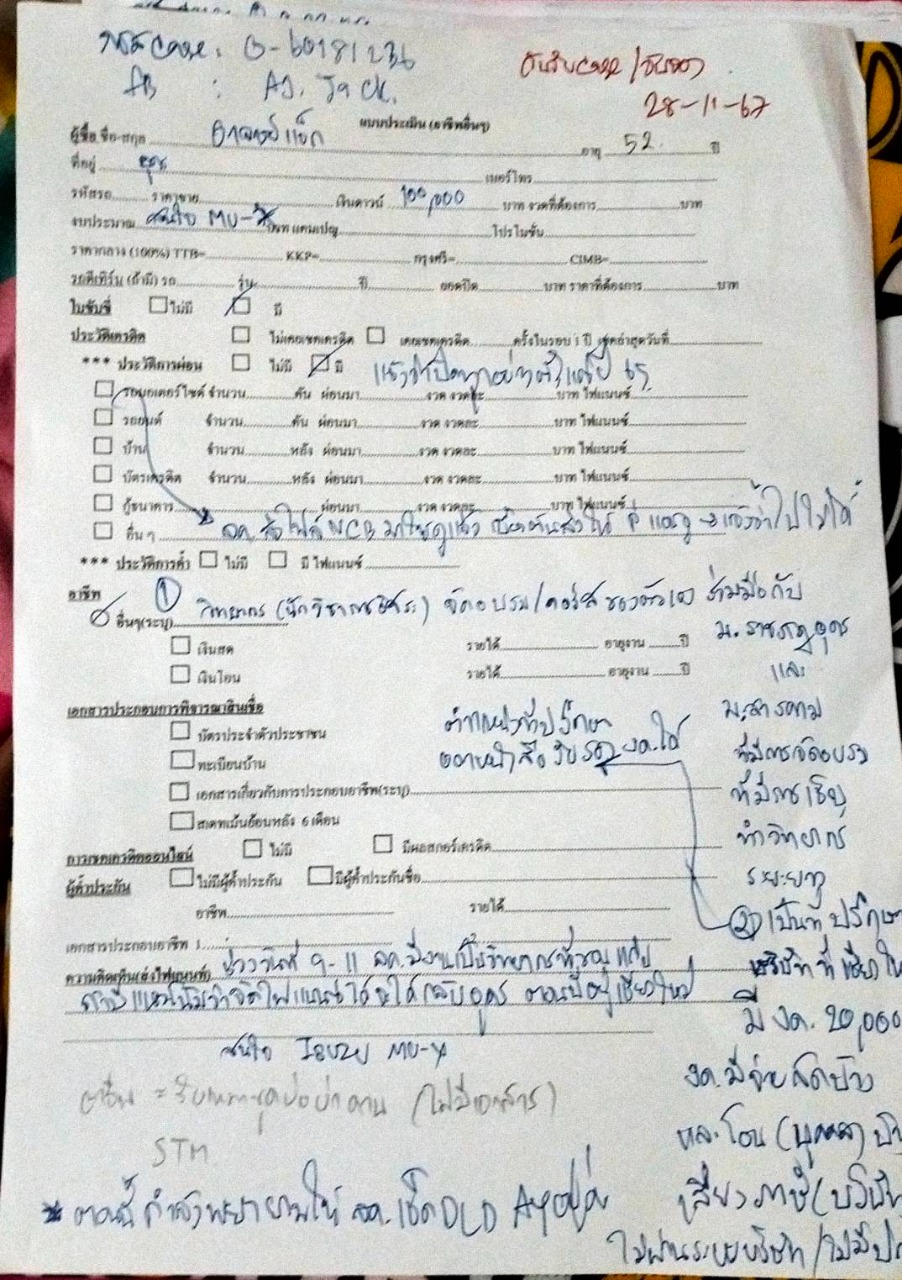 : G-6018123
FB : AJ. Jack.
28-11-67
แบบประเมิน (อาชีพอื่นๆ)
ผู้ซื้อ ชื่อ-สกุล อาจารย์แจ็ก อายุ 52 ปี
ที่อยู่ อุดร เบอร์โทร
รหัสรถ ราคาขาย เงินดาวน์ 100,000 บาท งวดที่ต้องการ บาท
งบประมาณ สนใจ MU-X แคมเปญ โปรโมชั่น
ราคากลาง (100%) TTB= KKP= กรุงศรี= CIMB=
รถตีเทิร์น (ถ้ามี) รถ รุ่น ปี ยอดปิด บาท ราคาที่ต้องการ บาท
ใบขับขี่ ไม่มี มี
ประวัติเครดิต ไม่เคยเชคเครดิต เคยเชคเครดิต ครั้งในรอบ 1 ปี เชคล่าสุดวันที่
*** ประวัติการผ่อน ไม่มี มี แจ้งว่าปิดทุกอย่างตั้งแต่ปี 65
รถมอเตอร์ไซค์ จำนวน คัน ผ่อนมา งวด งวดละ บาท ไฟแนนซ์
รถยนต์ จำนวน คัน ผ่อนมา งวด งวดละ บาท ไฟแนนซ์
บ้าน จำนวน หลัง ผ่อนมา งวด งวดละ บาท ไฟแนนซ์
บัตรเครดิต จำนวน หลัง ผ่อนมา งวด งวดละ บาท ไฟแนนซ์
กู้ธนาคาร ผ่อนมา งวด งวดละ บาท ไฟแนนซ์
อื่น ๆ ลค. ส่งไฟล์ NCB มาให้ดูแล้ว แจ้งว่าไปไม่ได้
*** ประวัติการค้ำ ไม่มี มี ไฟแนนซ์
อาชีพ
อื่นๆ(ระบุ) ① วิทยากร (นักวิชาการอิสระ) จัดอบรม/คอร์สของตัวเอง ร่วมมือกับ
ม. ราชภัฏอุดร
และ
ม. สารคาม
ที่มีการจัดอบรม
ที่มีการเชิญ
ทำวิทยากร
ระยะยาว
เงินสด รายได้ อายุงาน ปี
เงินโอน รายได้ อายุงาน ปี
เอกสารประกอบการพิจารณาสินเชื่อ
ตำแหน่งที่ปรึกษา
ออกหนังสือรับรอง งด. ได้
บัตรประจำตัวประชาชน
ทะเบียนบ้าน
เอกสารเกี่ยวกับการประกอบอาชีพ(ระบุ)
สเตทเม้นย้อนหลัง 6 เดือน
การเชคเครดิตออนไลน์ ไม่มี มีผลสกอร์เครดิต
ผู้ค้ำประกัน ไม่มีผู้ค้ำประกัน มีผู้ค้ำประกันชื่อ
อาชีพ รายได้
② เป็นที่ปรึกษา
บริษัท ที่เชียงใหม่
มี งด. 20,000
งด. มีจ่ายสดบ้าง
และโอน (บุคคล)
เลี่ยงภาษี (บริษัท)
เอกสารประกอบอาชีพ 1
ความคิดเห็น(ส่งไฟแนนซ์) ช่วงวันที่ 9-11 ลค. มีงานเป็นวิทยากรที่ขอนแก่น
ถ้ามีแนวโน้มว่าจัดไฟแนนซ์ได้ จะได้กลับอุดร ตอนนี้อยู่เชียงใหม่
สนใจ Isuzu MU-X
อาชีพอื่น = (ไม่มีเอกสาร)
STM
* ตอนนี้กำลังพยายามให้ ลค. เช็ค DLD Ayอยู่
ไม่ผ่านระบบบริษัท /